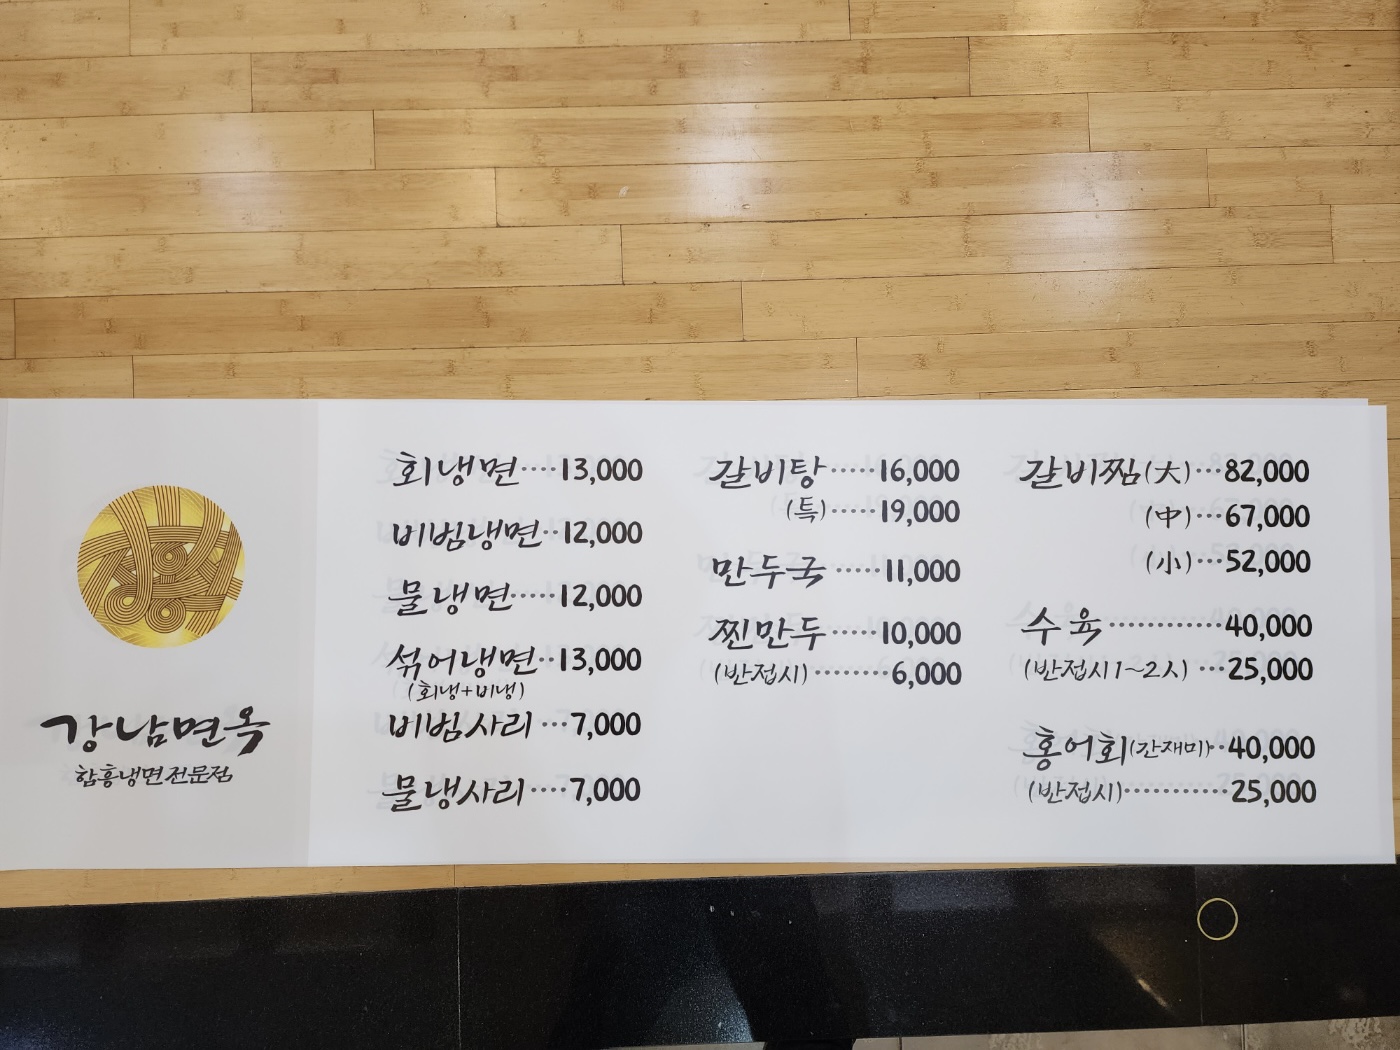 강남면옥
함흥냉면전문점
회냉면····13,000
비빔냉면··12,000
물냉면·····12,000
섞어냉면··13,000
(회냉+비냉)
비빔사리···7,000
물냉사리····7,000
갈비탕·····16,000
(특)·····19,000
만두국·····11,000
찐만두·····10,000
(반접시)········6,000
갈비찜(大)···82,000
(中)···67,000
(小)···52,000
수육···········40,000
(반접시1~2人)···25,000
홍어회(간재미)··40,000
(반접시)···········25,000